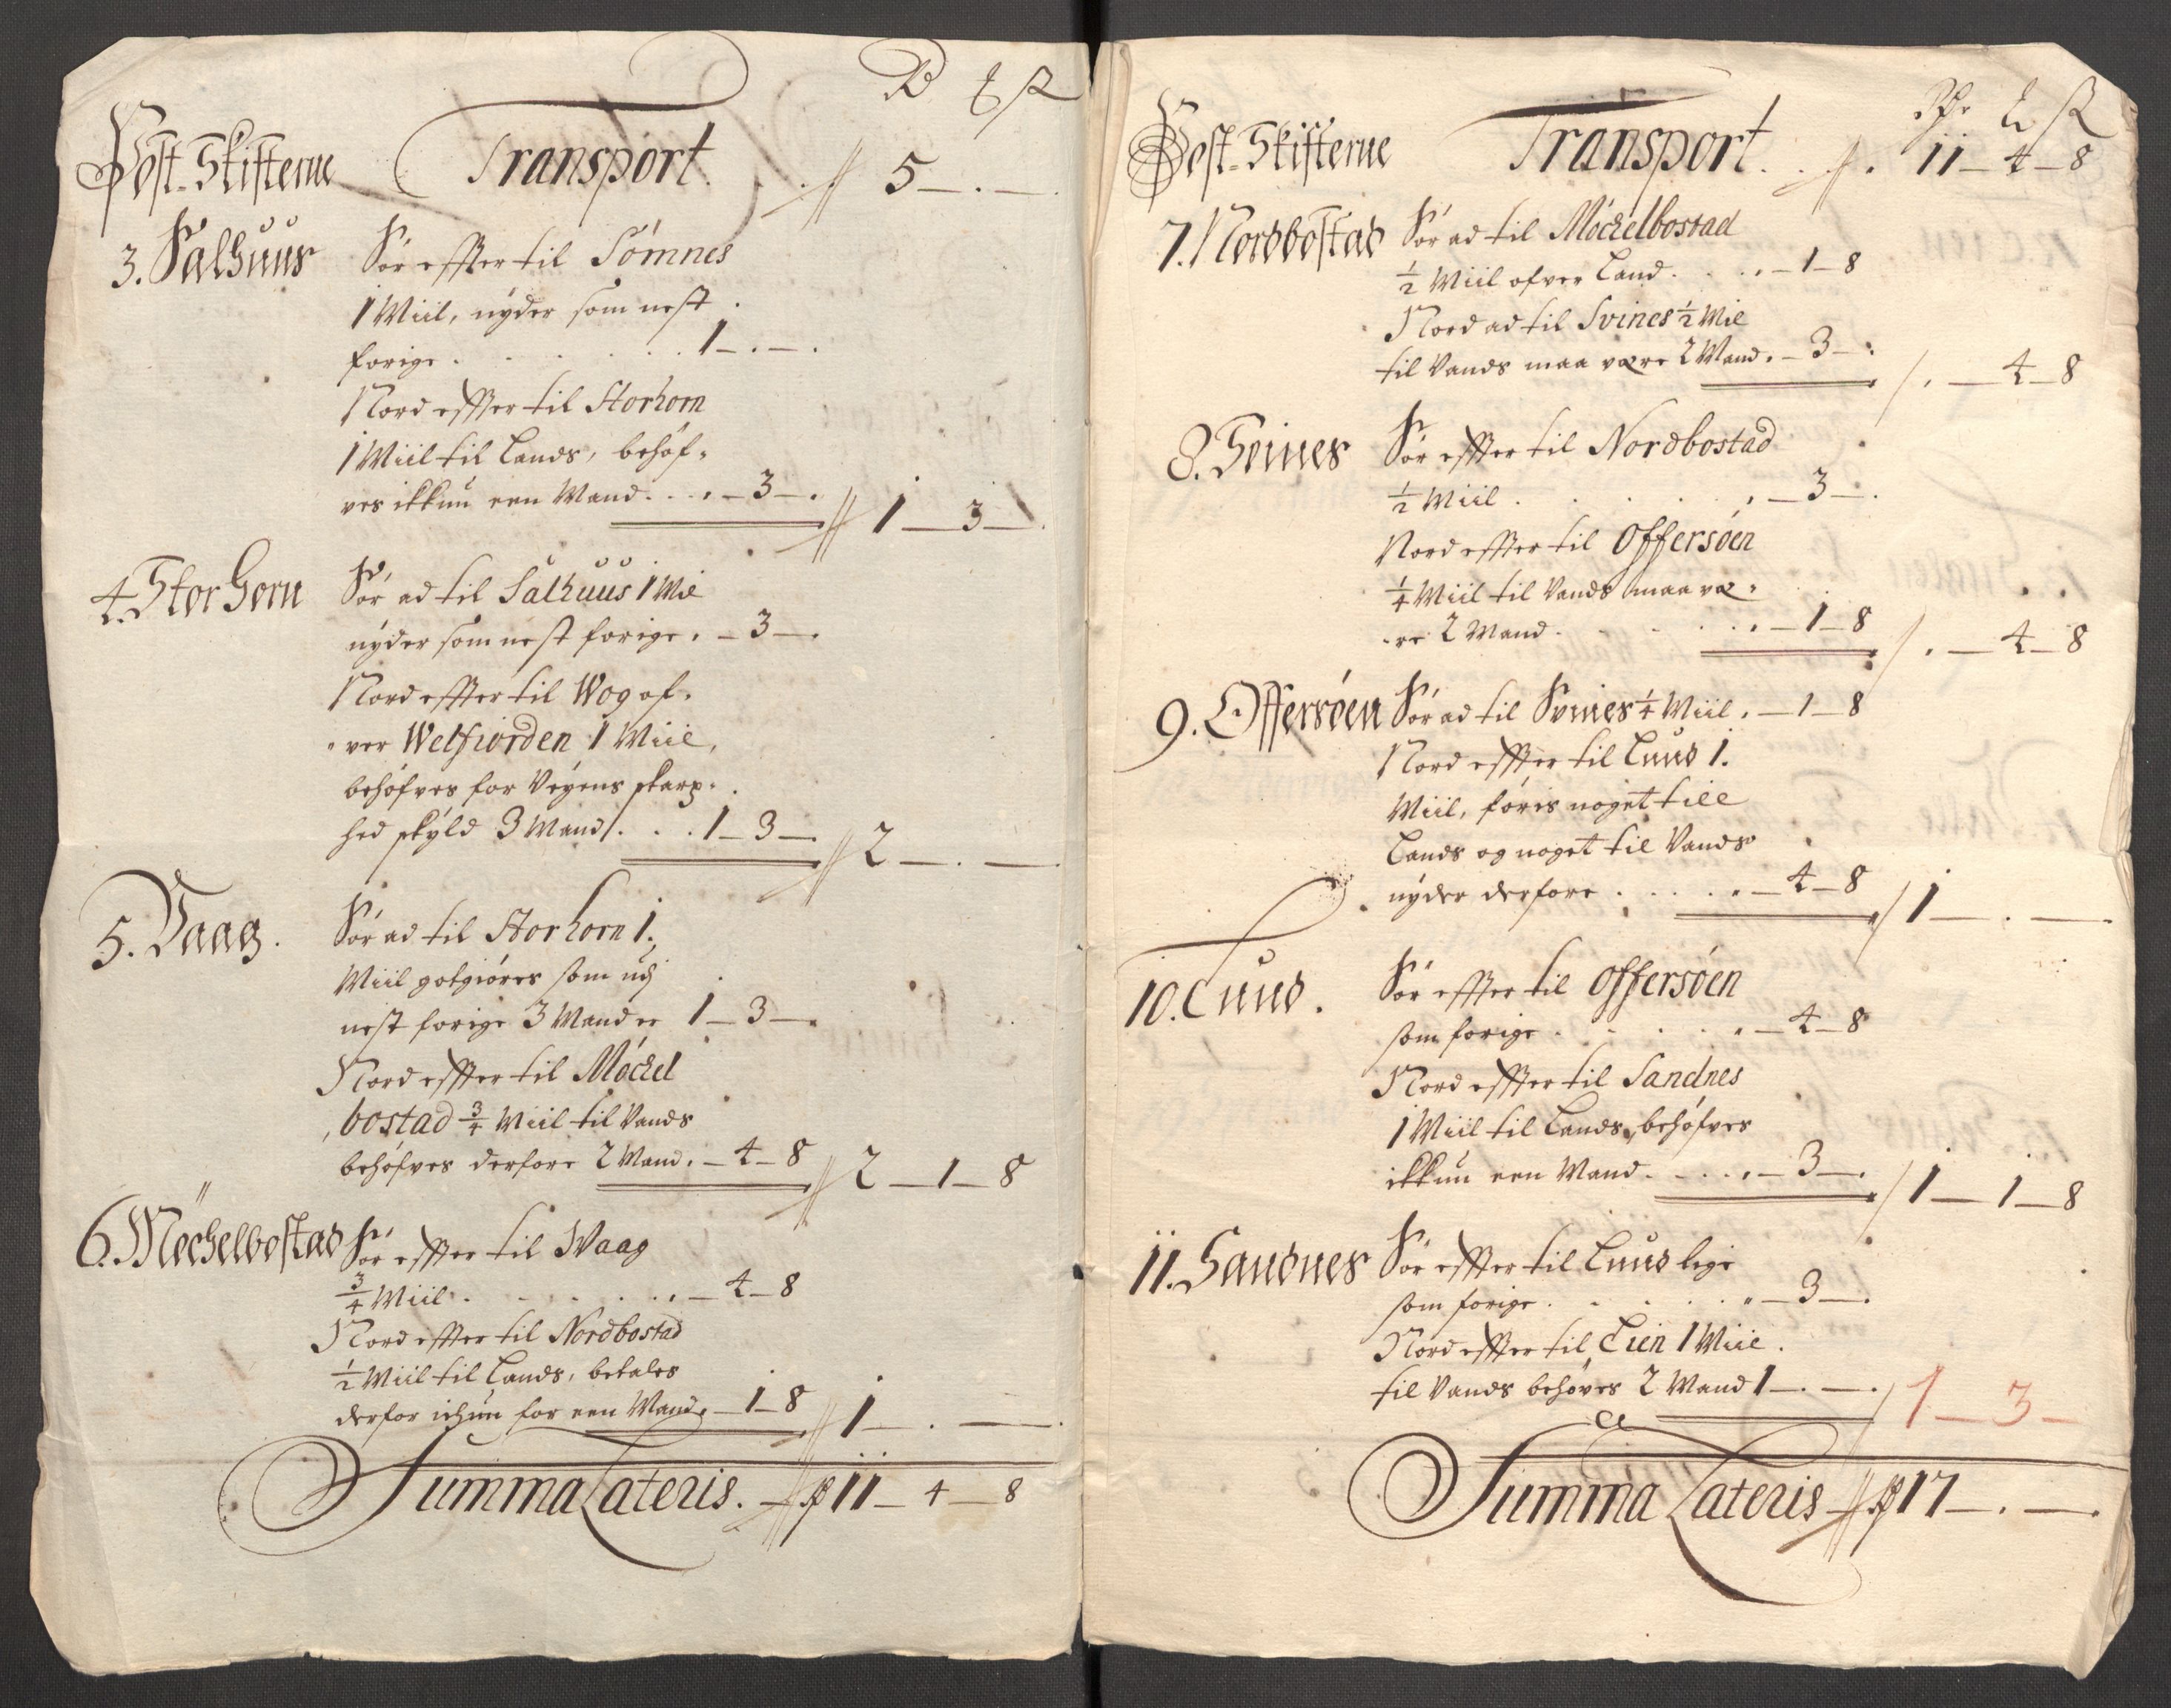 Post-Skifterne Transport . . 5 — . —
3. Salhuus Sør effter til Sömnes
1 Miil, nyder som nest
forige . . . . . . 1 — . — .
Nord effter til Storhorn
1 Miil til Lands, behöf-
ves ikkun een Mand . . . — 3 — . 1 — 3 — .
4. Stor Horn Sør ad til Salhuus 1 Miil
nyder som nest forige . — 3 — .
Nord effter til Wog of-
ver Welfiorden 1 Miil,
behöfves for Veyens skarp-
hed skyld 3 Mand . . . 1 — 3 — . 2 — . —
5. Vaag. Sør ad til Storhorn 1.
Miil gotgiöres som udj
nest forige 3 Mand er 1 — 3 — .
Nord effter til Möckel
bostad 3/4 Miil til Vands
behöfves derfore 2 Mand . — 4 — 8 2 — 1 — 8
6. Möchelbostad Sör effter til Waag
3/4 Miil . . . . . . — 4 — 8
Nord effter til Nordbostad
1/2 Miil til Lands, betales
derfor ichun for een Mand . — 1 — 8 1 — . —
Summa Lateris . — 11 — 4 — 8
Post-Skifterne Transport . . . 11 — 4 — 8
7. Nordbostad Sör ad til Möckelbostad
1/2 Miil ofver Land . . . . — 1 — 8
Nord ad til Svines 1/2 Miil
til Vands maa være 2 Mand . — 3 — . / . — 4 — 8
8. Svines Sör effter til Nordbostad
1/2 Miil . . . . . . — 3 — .
Nord effter til Offersöen
1/4 Miil til Vands maa væ-
re 2 Mand . . . . . — 1 — 8 / . — 4 — 8
9. Offersöen Sör ad til Svines 1/4 Miil . — 1 — 8
Nord effter til Lund 1.
Miil, föris noget till
Lands og noget til Vands
nyder derfore . . . . . — 4 — 8 / 1 — . —
10. Lund . Sör effter til Offersöen
som forige . . . . . — 4 — 8
Nord effter til Sandnes
1 Miil til Lands, behöfves
ikkun een Mand . . . . — 3 — . / 1 — 1 — 8
11. Sandnes Sör effter til Lund lige
som forige . . . . . — 3 — .
Nord effter til Lien 1 Miil .
til Vands behöves 2 Mand 1 — . — . / 1 — 3 —
Summa Lateris — 17 — . — .